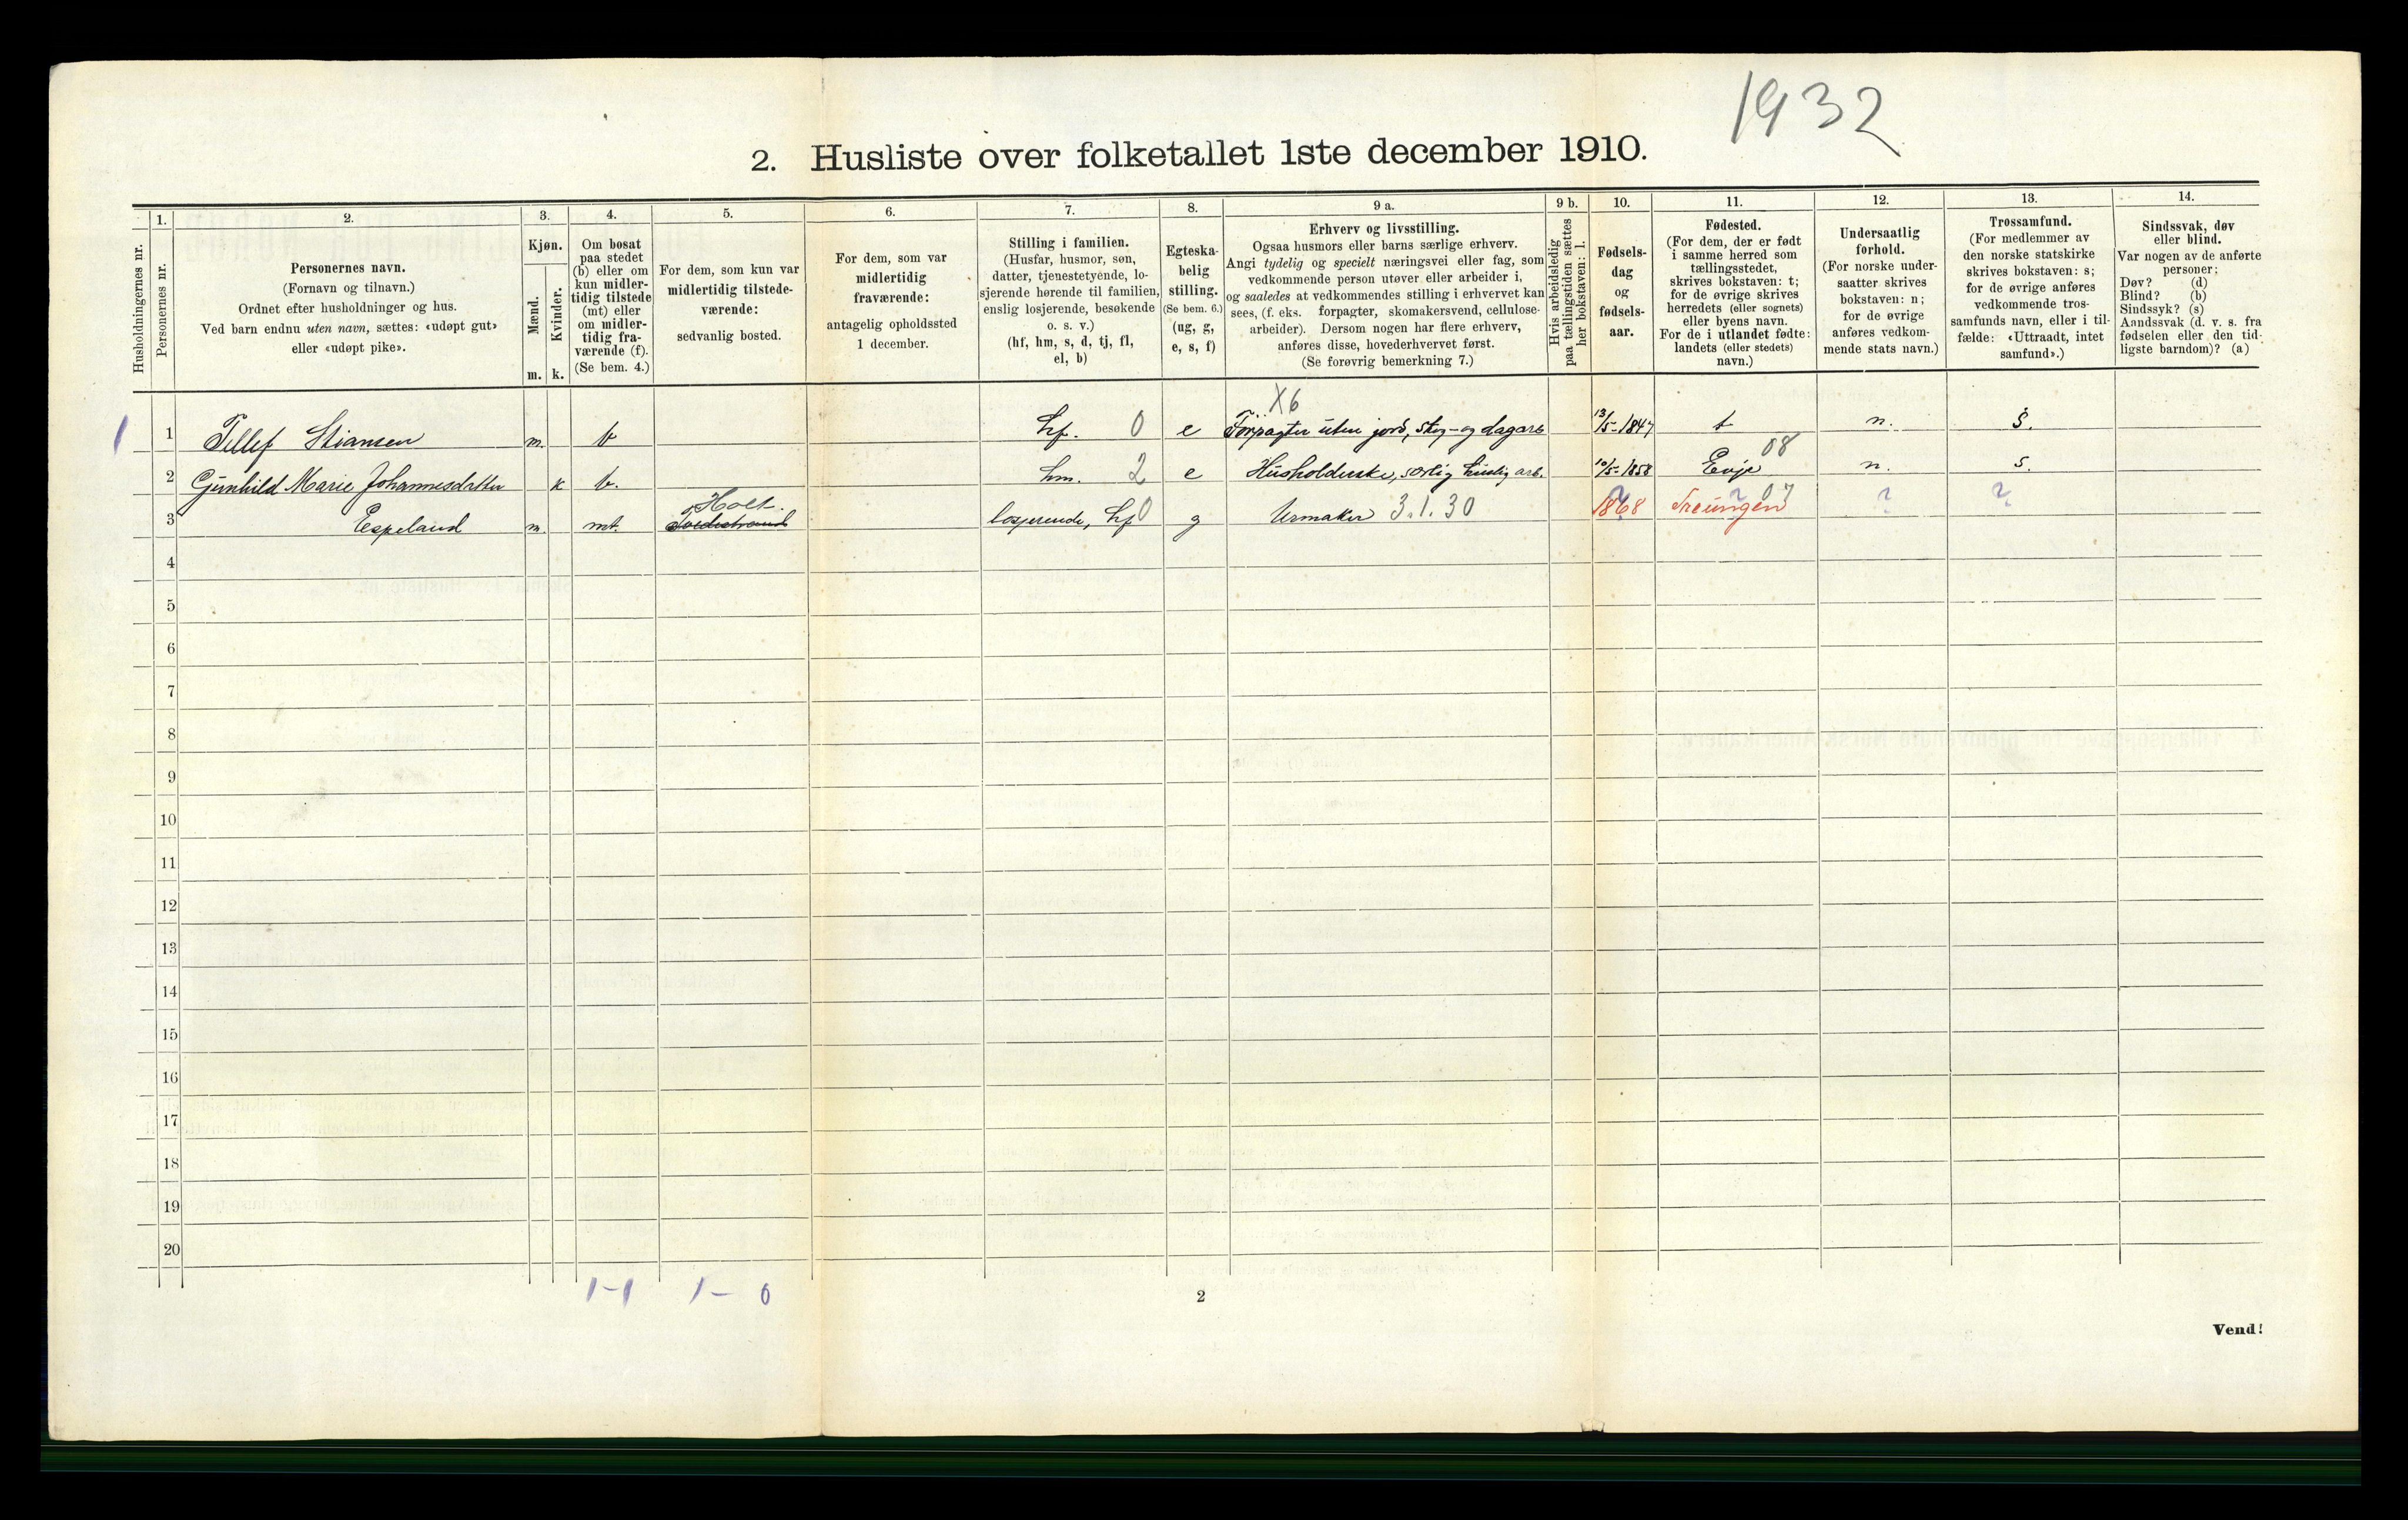 1932
2. Husliste over folketallet 1ste december 1910.
Husholdningernes nr.
1.
Personernes nr.
2.
Personernes navn.
(Fornavn og tilnavn.)
Ordnet efter husholdninger og hus.
Ved barn endnu uten navn, sættes: «udøpt gut»
eller «udøpt pike».
3.
Kjøn.
Mænd.
m.
Kvinder.
k.
4.
Om bosat
paa stedet
(b) eller om
kun midler-
tidig tilstede
(mt) eller
om midler-
tidig fra-
værende (f).
(Se bem. 4.)
5.
For dem, som kun var
midlertidig tilstede-
værende:
sedvanlig bosted.
6.
For dem, som var
midlertidig
fraværende:
antagelig opholdssted
1 december.
7.
Stilling i familien.
(Husfar, husmor, søn,
datter, tjenestetyende, lo-
sjerende hørende til familien,
enslig losjerende, besøkende
o. s. v.)
(hf, hm, s, d, tj, fl,
el, b)
8.
Egteska-
belig
stilling.
(Se bem. 6.)
(ug, g,
e, s, f)
9 a.
Erhverv og livsstilling.
Ogsaa husmors eller barns særlige erhverv.
Angi tydelig og specielt næringsvei eller fag, som
vedkommende person utøver eller arbeider i,
og saaledes at vedkommendes stilling i erhvervet kan
sees, (f. eks. forpagter, skomakersvend, cellulose-
arbeider). Dersom nogen har flere erhverv,
anføres disse, hovederhvervet først.
(Se forøvrig bemerkning 7.)
9 b.
Hvis arbeidsledig
paa tællingstiden sættes
her bokstaven: l.
10.
Fødsels-
dag
og
fødsels-
aar.
11.
Fødested.
(For dem, der er født
i samme herred som
tællingsstedet,
skrives bokstaven: t;
for de øvrige skrives
herredets (eller sognets)
eller byens navn.
For de i utlandet fødte:
landets (eller stedets)
navn.)
12.
Undersaatlig
forhold.
(For norske under-
saatter skrives
bokstaven: n;
for de øvrige
anføres vedkom-
mende stats navn.)
13.
Trossamfund.
(For medlemmer av
den norske statskirke
skrives bokstaven: s;
for de øvrige anføres
vedkommende tros-
samfunds navn, eller i til-
fælde: «Uttraadt, intet
samfund».)
14.
Sindssvak, døv
eller blind.
Var nogen av de anførte
personer;
Døv? (d)
Blind? (b)
Sindssyk? (s)
Aandssvak (d. v. s. fra
fødselen eller den tid-
ligste barndom)? (a)
X6
1 1 Tellef Stiansen m. b hf. 0 e Forpagter uten jord, skog- og dagarb 13/5-1847 t n. s.
08
2 Gunhild Marie Johannesdatter k b. hm. 2 e Husholderske, særlig huslig arb. 10/5-1858 Evje n. s.
Holt.
3 Espeland m. mt. Tvedestrand losjerende, hf 0 g Urmaker 3.1.30 1868 ? Treungen ? 07 ? ?
4
5
6
7
8
9
10
11
12
13
14
15
16
17
18
19
20
1-1 1-0
2
Vend!